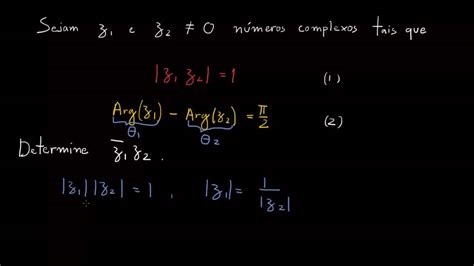 Sejam z₁ e z₂ ≠ 0 números complexos tais que
|z₁ z₂| = 1 (1)
Arg(z₁) - Arg(z₂) = π/2 (2)
θ₁ θ₂
Determine z̄₁ z₂ .
|z₁| |z₂| = 1 , |z₁| = 1/|z₂|